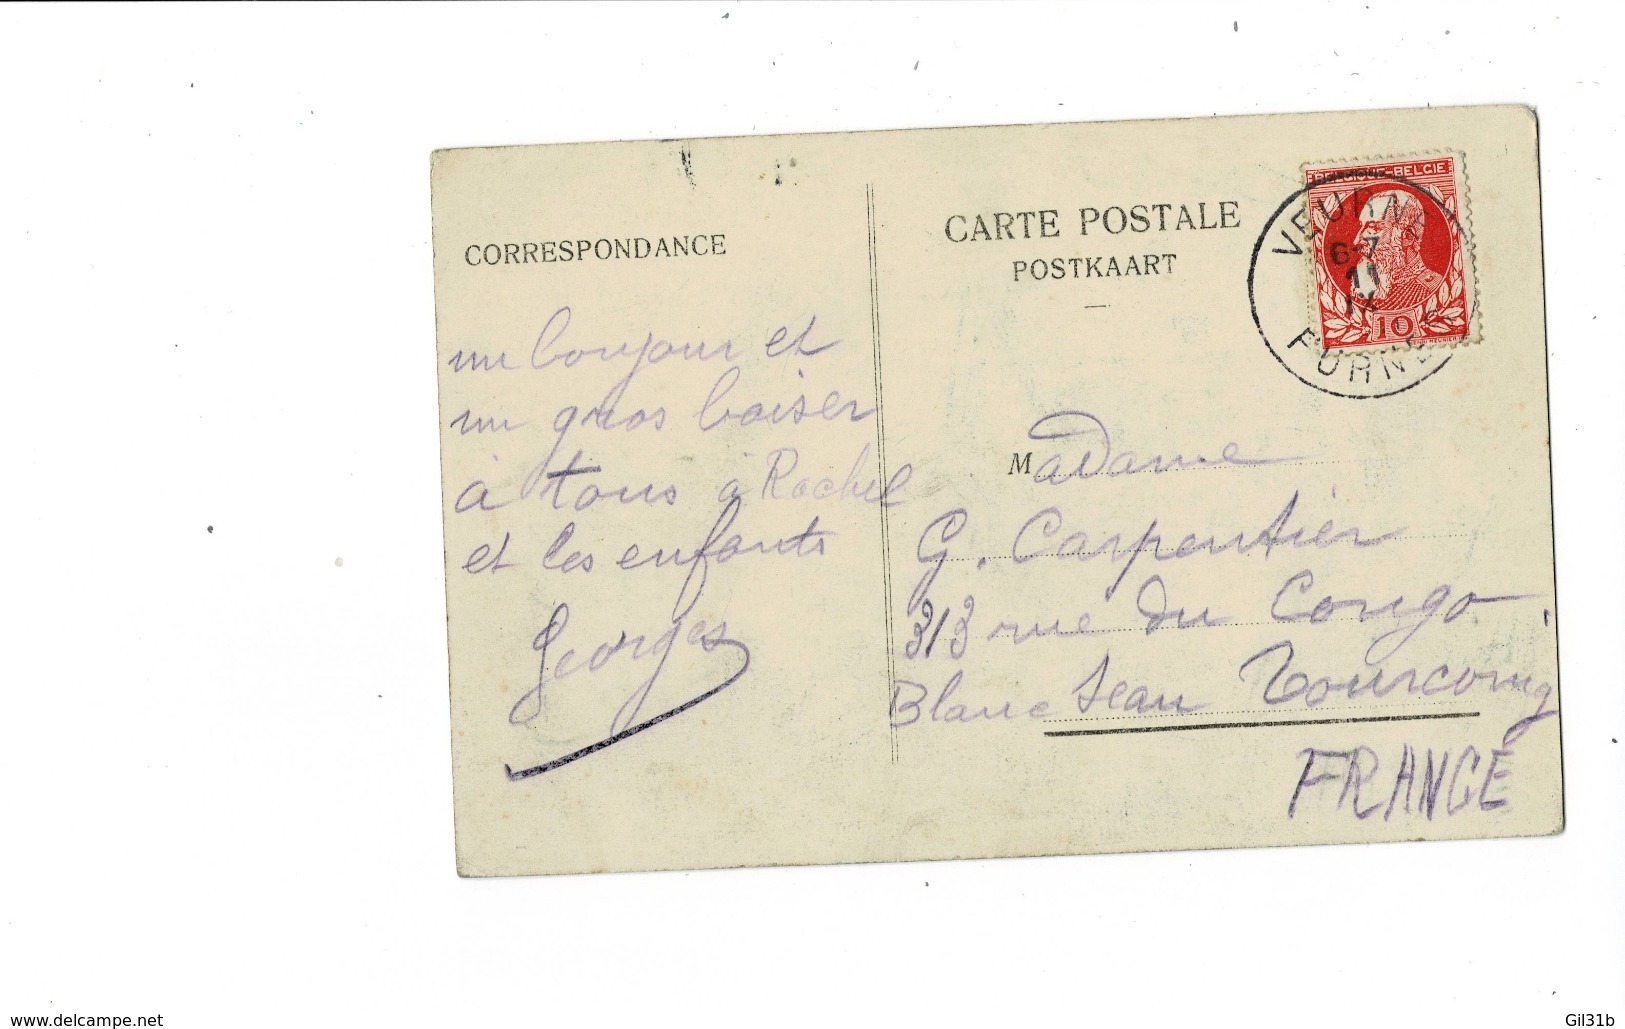 CORRESPONDANCE
un bonjour et
un gros baiser
à tous à Rachel
et les enfants
Georges
CARTE POSTALE
POSTKAART
BELGIQUE-BELGIE
10
VEURNE
6-7
11
IX
FURNES
Madame
G. Carpentier
313 rue du Congo
Blanc Seau Tourcoing
FRANCE
www.delcampe.net
Gil31b